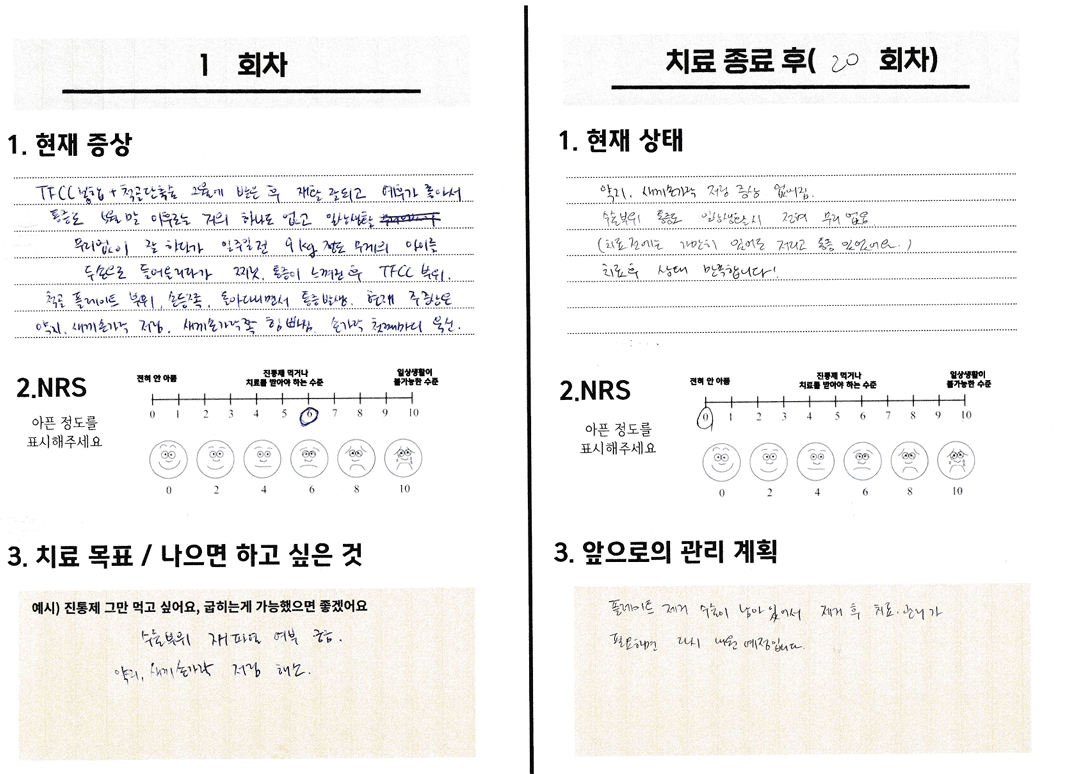 1 회차
1. 현재 증상
TFCC 봉합 + 척골단축술 그렇게 받은 후 재활 잘되고 예후가 좋아서
통증도 별말 이유로는 거의 하나도 없고 일상생활
무리없이 잘 하다가 일주일전 9kg 정도 무게의 아이를
두손으로 들어올리다가 찌릿, 통증이 느껴진 후 TFCC 부위,
척골 플레이트 부위, 손등쪽, 돌아다니면서 통증발생. 현재 주증상은
약지, 새끼손가락 저림. 새끼손가락쪽 힘 빠짐. 손가락 첫째마디
2.NRS
아픈 정도를
표시해주세요
전혀 안 아픔
진통제 먹거나
치료를 받아야 하는 수준
일상생활이
불가능한 수준
0 1 2 3 4 5 6 7 8 9 10
0 2 4 6 8 10
3. 치료 목표 / 나으면 하고 싶은 것
예시) 진통제 그만 먹고 싶어요, 굽히는게 가능했으면 좋겠어요
수술부위 재파열 여부 궁금.
약지, 새끼손가락 저림 해소.
치료 종료 후( 20 회차)
1. 현재 상태
약지, 새끼손가락 저림 증상 없어짐.
수술부위 통증도 일상생활시 전혀 무리 없음
(치료전에는 가만히 있어도 저리고 통증 있었어요.)
치료후 상태 만족합니다!
2.NRS
아픈 정도를
표시해주세요
전혀 안 아픔
진통제 먹거나
치료를 받아야 하는 수준
일상생활이
불가능한 수준
0 1 2 3 4 5 6 7 8 9 10
0 2 4 6 8 10
3. 앞으로의 관리 계획
플레이트 제거 수술이 남아 있어서 제거 후 치료.관리가
필요하면 다시 내원 예정입니다.